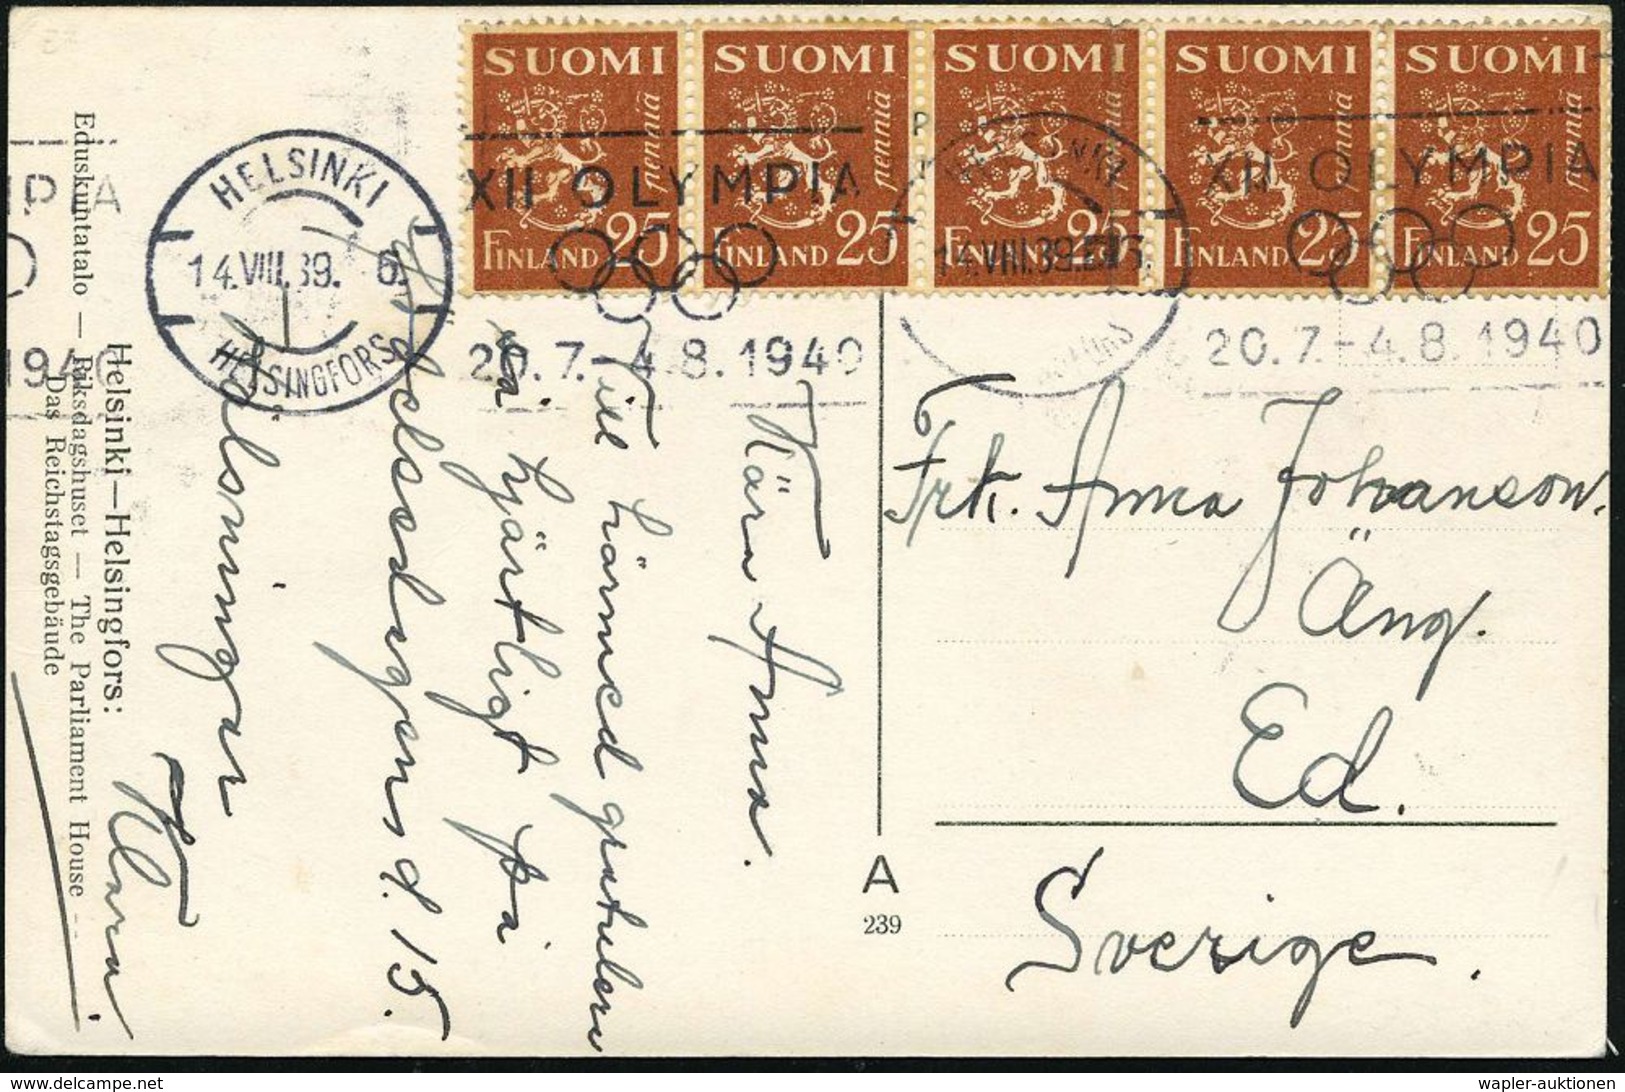 SUOMI SUOMI SUOMI SUOMI SUOMI
penniä penniä penniä penniä penniä
FINLAND 25 FINLAND 25 FINLAND 25 FINLAND 25 FINLAND 25
XII OLYMPIA
20.7.-4.8.1940
XII OLYMPIA
20.7.-4.8.1940
HELSINKI
14.VIII.39. 6.
HELSINGFORS
14.VIII.39.
1940
Helsinki—Helsingfors:
Eduskuntatalo — Riksdagshuset — The Parliament House —
Das Reichstagsgebäude
Kära Anna.
Till härmed gratulera
så hjärtligt på
födelsedagen d. 15.
Hälsningar
Klara
Frk. Anna Johanson.
Äng.
Ed.
Sverige.
A
239
www.delcampe.net
wapler-auktionen